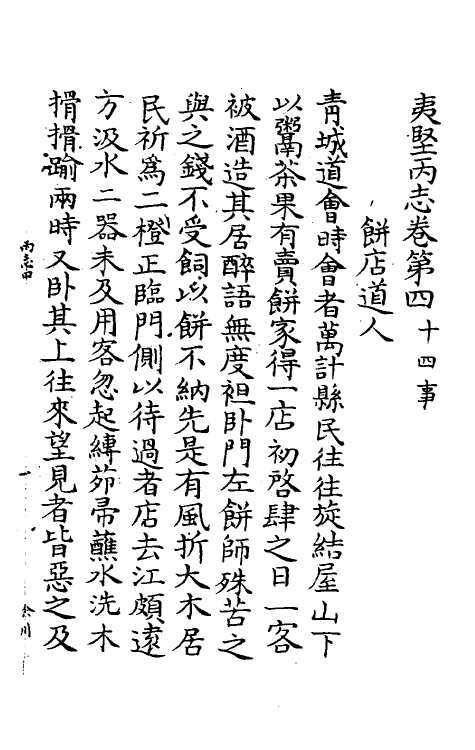 夷堅丙志卷第四十四事
餅店道人
青城道會時會者萬計縣民往往旋結屋山下
以鬻茶果有賣餅家得一店初啓肆之日一客
被酒造其居醉語無度袒卧門左餅師殊苦之
與之錢不受飼以餅不納先是有風折大木居
民祈爲二橙正臨門側以待過者店去江頗遠
方汲水二器未及用客忽起縛茆帚蘸水洗木
搰搰踰兩時又卧其上往來望見者皆惡之及
丙志四
一